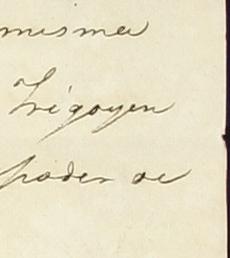 misma
Irigoyen
poder de